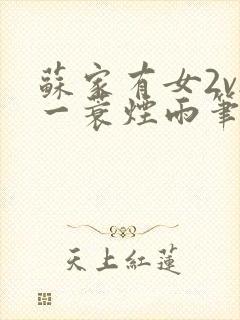 蘇家有女2v
一蓑煙雨筆
天上紅蓮